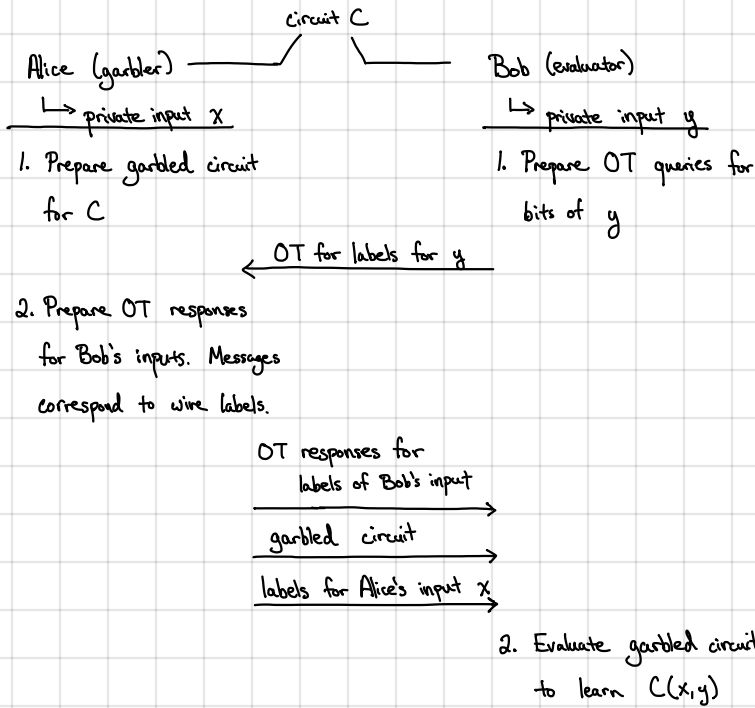 circuit C
Alice (garbler)
Bob (evaluator)
↳ private input x
↳ private input y
1. Prepare garbled circuit
for C
1. Prepare OT queries for
bits of y
OT for labels for y
2. Prepare OT responses
for Bob's inputs. Messages
correspond to wire labels.
OT responses for
labels of Bob's input
garbled circuit
labels for Alice's input x
2. Evaluate garbled circuit
to learn C(x,y)